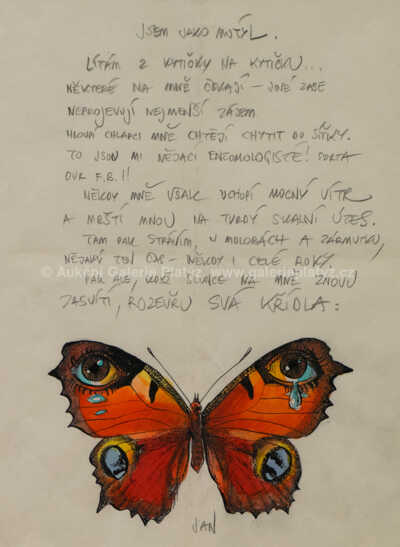 JSEM JAKO MOTÝL.
LÍTÁM Z KYTIČKY NA KYTIČKU...
NĚKTERÉ NA MNĚ ČEKAJÍ – JINÉ ZASE
NEPROJEVUJÍ NEJMENŠÍ ZÁJEM
HLOUPÍ CHLAPCI MNĚ CHTĚJÍ CHYTIT DO SÍŤKY.
TO JSOU MI NĚJACÍ ENTOMOLOGISTÉ! SORTA
F.B.!!
NĚKDY MNĚ VŠAK UCHOPÍ MOCNÝ VÍTR
A MRŠTÍ MNOU NA TVRDÝ SKALNÍ ÚTES.
TAM PAK STRÁVÍM, V MDLOBÁCH A ZÁRMUTKU,
NĚJAKÝ TEN ČAS – NĚKDY I CELÉ ROKY.
© Aukční Galerie Platýz, www.galerieplatyz.cz
PAK ALE, KDYŽ SLUNCE NA MNE ZNOVU
ZASVÍTÍ, ROZEVŘU SVÁ KŘÍDLA:
JAN